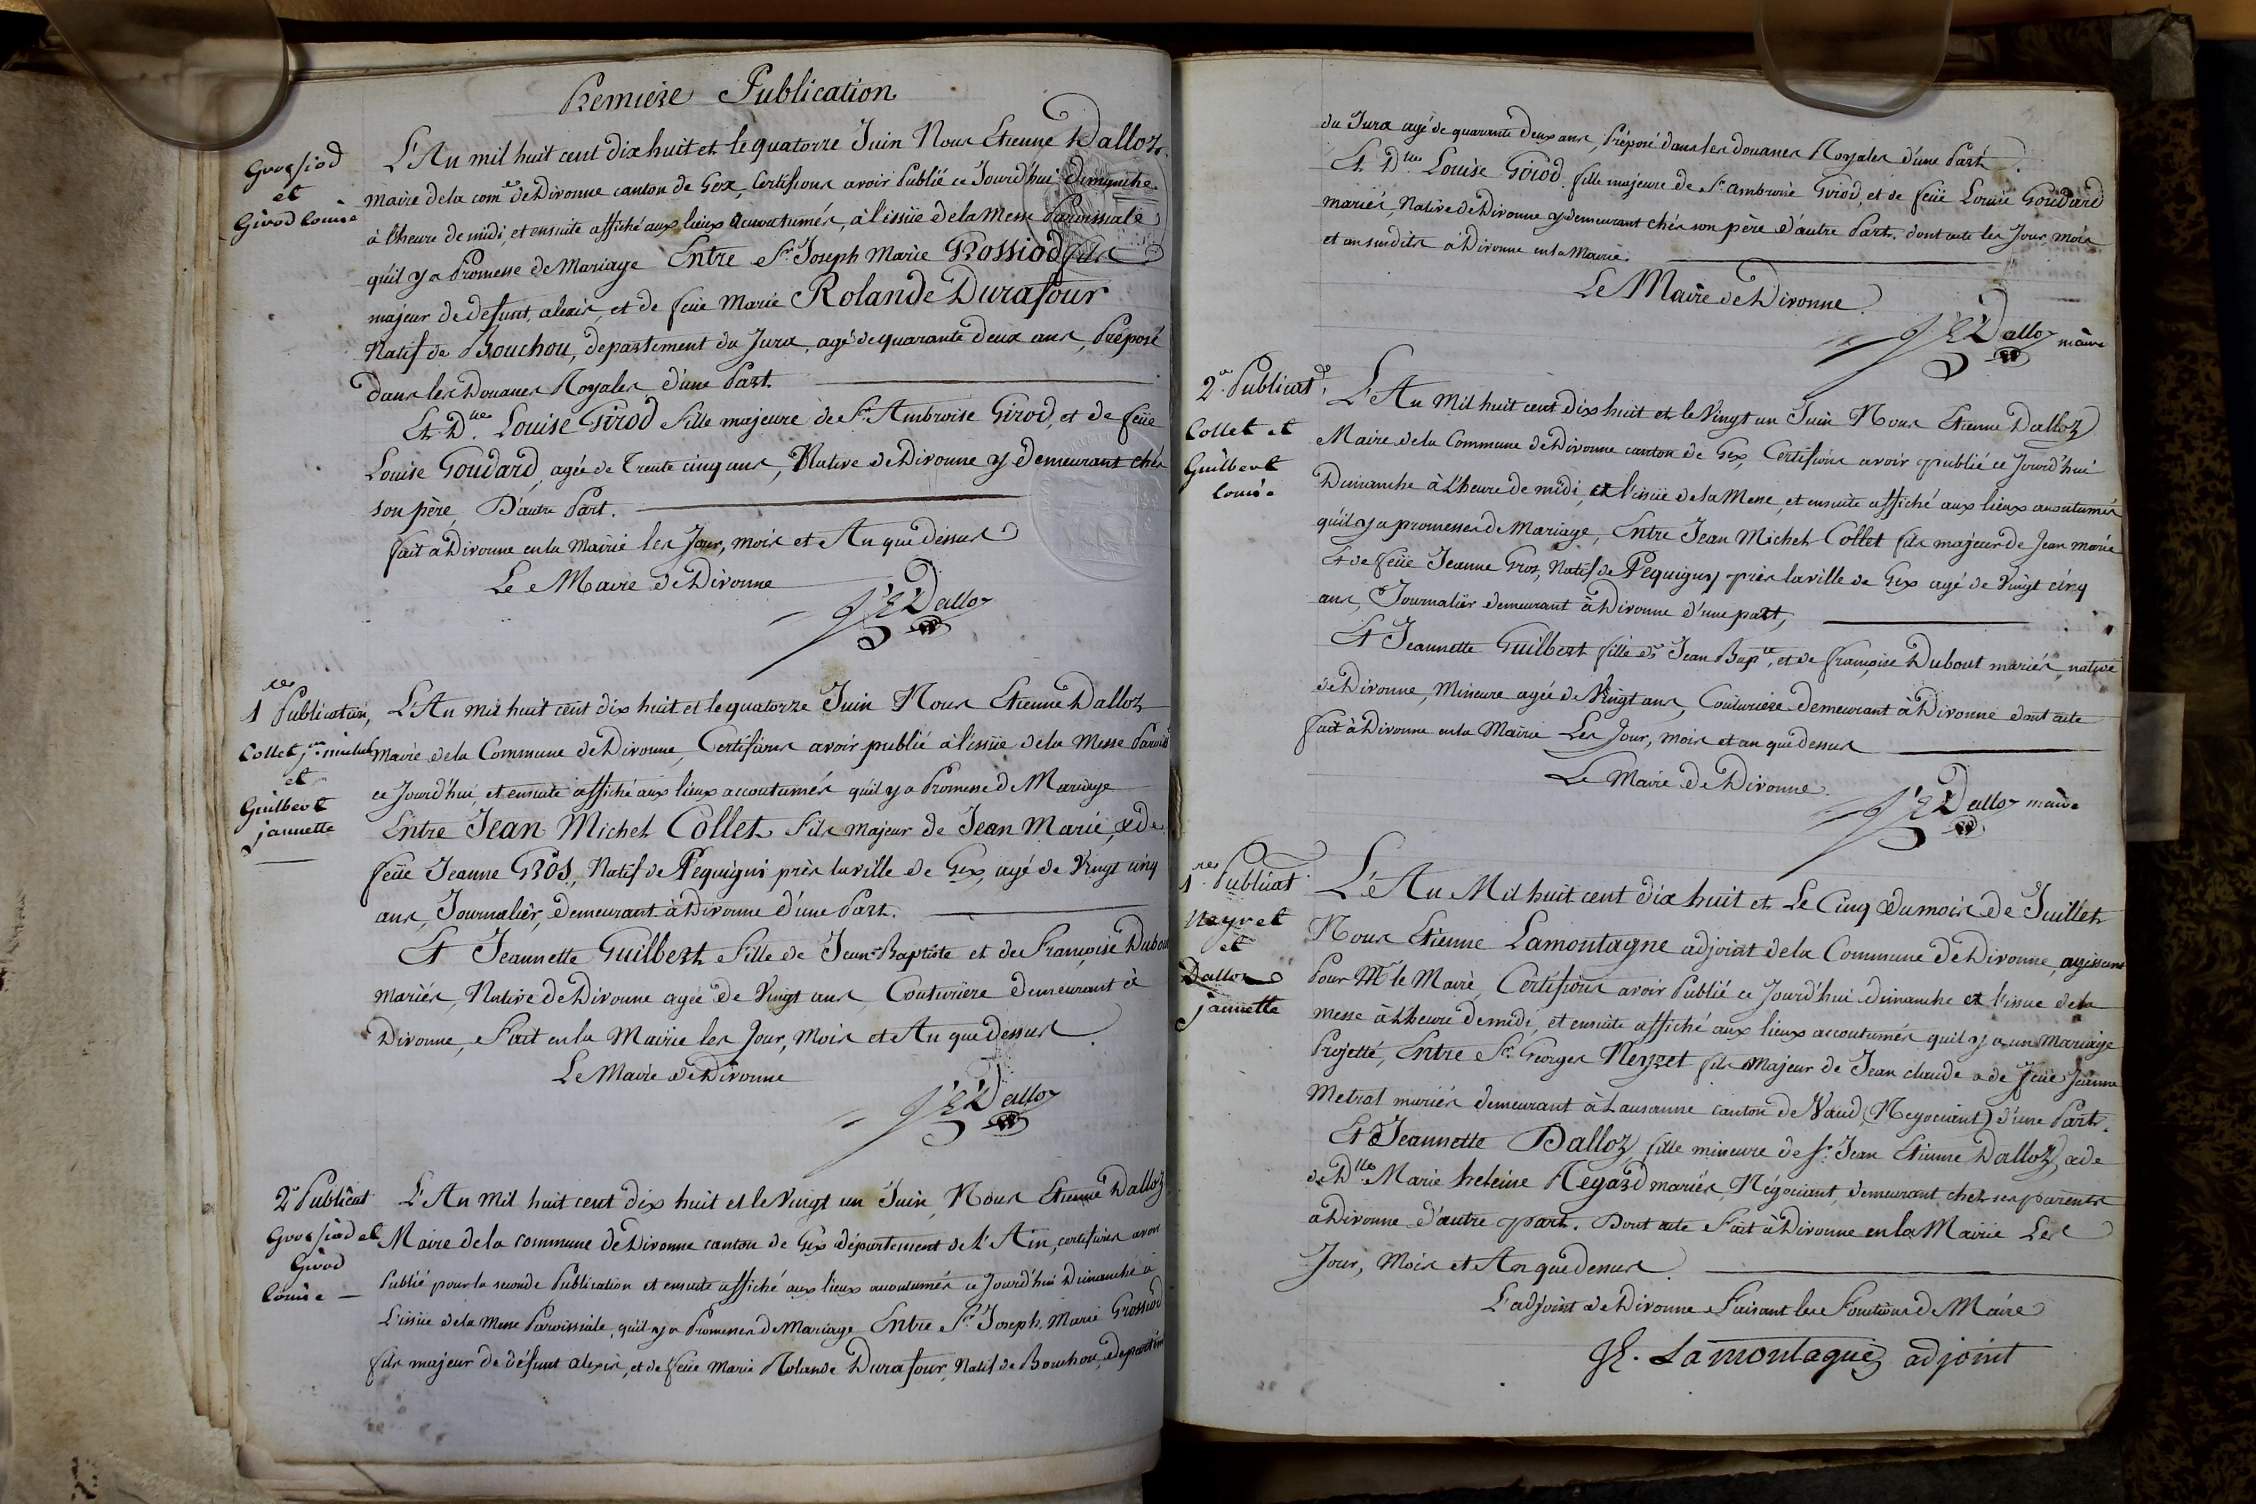 Premiere Publication
Grossiod
et
Girod louise
L'An mil huit cent dix huit et le quatorze Juin Nous Etienne Dalloz
maire de la com.e de Divonne canton de Gex, Certifions avoir Publié ce Jourd'hui dimanche
à l'heure de midi, et ensuite affiché aux lieux accoutumés, à l'issüe de la Messe Paroissiale
qu'il y a Promesse de Mariage Entre Sr. Joseph Marie Grossiod fils
majeur de défunt alexis, et de feüe Marie Rolande Durafour
Natif de Bouchou, departement du Jura, agé de quarante deux ans, Préposé
dans les Douanes Royales d'une Part.
Et D.lle Louise Girod fille majeure de Sr. Ambroise Girod, et de feüe
Louise Goudard, agée de Trente cinq ans, Native de Divonne y demeurant chés
son père, D'autre Part.
fait à Divonne en la Mairie les Jour, mois et An que dessus
Le Maire de Divonne
J E Dalloz
1re Publication,
Collet jn. michel
et
Guilbert
jannette
L'An mil huit cent dix huit et le quatorze Juin Nous Etienne Dalloz
Maire de la Commune de Divonne, Certifions avoir publié à l'issüe de la Messe Parois.
ce Jourd'hui, et ensuite affiché aux lieux accoutumés qu'il y a Promesse de Mariage
Entre Jean Michel Collet fils majeur de Jean Marie, & de
feüe Jeanne Gros, Natif de Pequigni près la ville de Gex, agé de Vingt cinq
ans, Journalier, demeurant à Divonne d'une Part.
Et Jeannette Guilbert fille de Jean-Baptiste et de Françoise Dubout
mariés, Native de Divonne agée de Vingt ans, Couturière demeurant à
Divonne, Fait en la Mairie les Jour, Mois et An que Dessus.
Le Maire de Divonne
J E Dalloz
2e Publicat
Grossiod et
Girod
louise
L'An mil huit cent dix huit et le Vingt un Juin, Nous Etienne Dalloz
Maire de la commune de Divonne canton de Gex département de l'Ain, certifions avoir
Publié pour la seconde Publication et ensuite affiché aux lieux accoutumés ce Jourd'hui Dimanche à
L'issüe de la Messe Paroissiale, qu'il y a Promesses de Mariage Entre Sr. Joseph Marie Grossiod
fils majeur de défunt alexis, et de feüe Marie Rolande Durafour, Natif de Bouchou, departemt
du Jura agé de quarante Deux ans, Préposé dans les douanes Royales d'une Part.
Et Dlle. Louise Girod fille majeure de Sr. ambroise Girod, et de feüe Louise Goudard
mariés, Native de Divonne y demeurant chés son père d'autre Part. dont acte les Jour, mois
et an susdits à Divonne en la Mairie.
Le Maire de Divonne.
J E Dalloz maire
2e. Publicat.
Collet et
Guilbert
louise
L'An Mil huit cent dix huit et le Vingt un Juin Nous Etienne Dalloz
Maire de la Commune de Divonne canton de Gex, Certifions avoir publié ce Jourd'hui
Dimanche à l'heure de midi, et l'issüe de la Messe, et ensuite affiché aux lieux accoutumés
qu'il y a promesses de Mariage, Entre Jean Michel Collet fils majeur de Jean marie
et de feüe Jeanne Gros, Natif de Pequigny près la ville de Gex agé de Vingt cinq
ans, Journalier demeurant à Divonne d'une part,
Et Jeannette Guilbert fille de Jean Bapte., et de françoise Dubout mariés, native
de Divonne, Mineure agée de Vingt ans, Couturière demeurant à Divonne dont acte
fait à Divonne en la Mairie Les Jour, mois et an que dessus
Le Maire de Divonne.
J E Dalloz maire
1re Publicat.
Neyret
et
Dalloz
jannette
L'An Mil huit cent dix huit et Le Cinq du mois de Juillet
Nous Etienne Lamontagne adjoint de la Commune de Divonne, agissant
Pour Mr. le Maire, Certifions avoir Publié ce Jourd'hui dimanche et l'issue de la
messe à l'heure de midi, et ensuite affiché aux lieux accoutumés qu'il y a un Mariage
Projetté, Entre Sr. Georges Neyret fils Majeur de Jean claude & de feüe Jeanne
Metral mariés demeurant à Lausanne canton de Vaud, (Negociant) d'une Part.
Et Jeannette Dalloz, fille mineure de Sr. Jean Etienne Dalloz, & de
de Dlle Marie heleine Regard mariés, Négociant, demeurant chez ses parents
à Divonne d'autre part. Dont acte Fait à Divonne en la Mairie Les
Jour, Mois et An que Dessus.
L'adjoint de Divonne Faisant les Fonctions de Maire
J E. Lamontagne adjoint